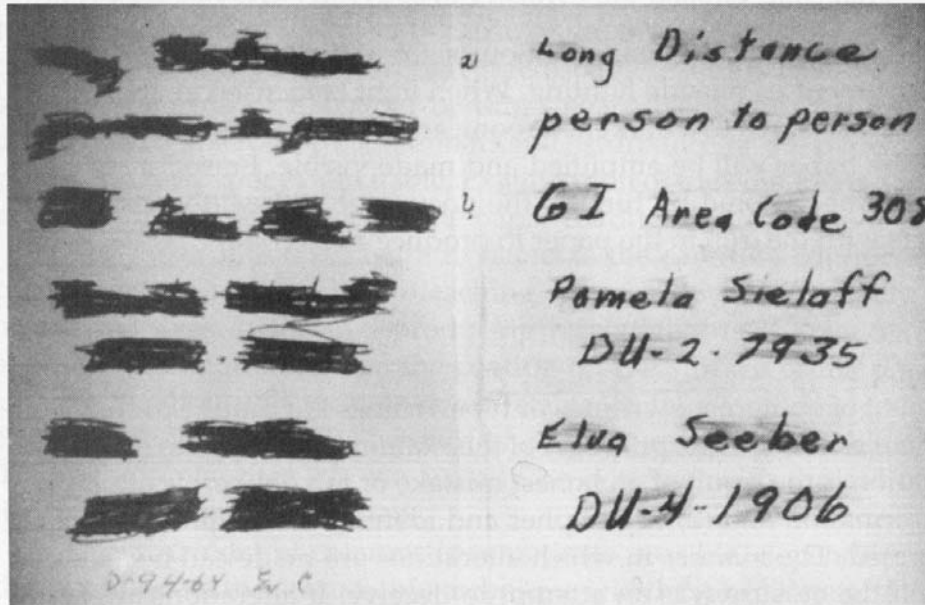 Long Distance
person to person
GI Area Code 308
Pamela Sielaff
DU-2-7935
Elva Seeber
DU-4-1906